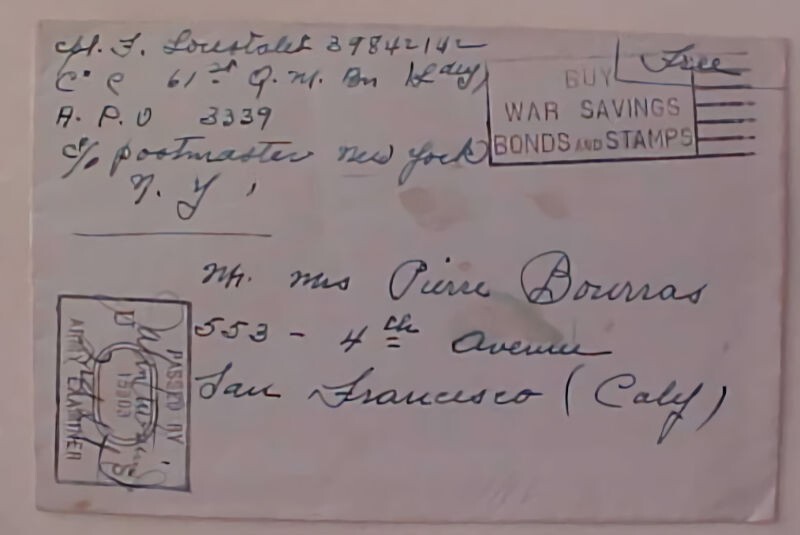 Cpl. F. Loustalet 39842142
Co C 61st Q. M. Bn (Ldry)
A. P. O 3339
c/o postmaster New York
N. Y,
Free
BUY
WAR SAVINGS
BONDS AND STAMPS
Mr. Mrs Pierre Bourras
553 - 4th Avenue
San Francisco (Calif)
PASSED BY
ARMY EXAMINER